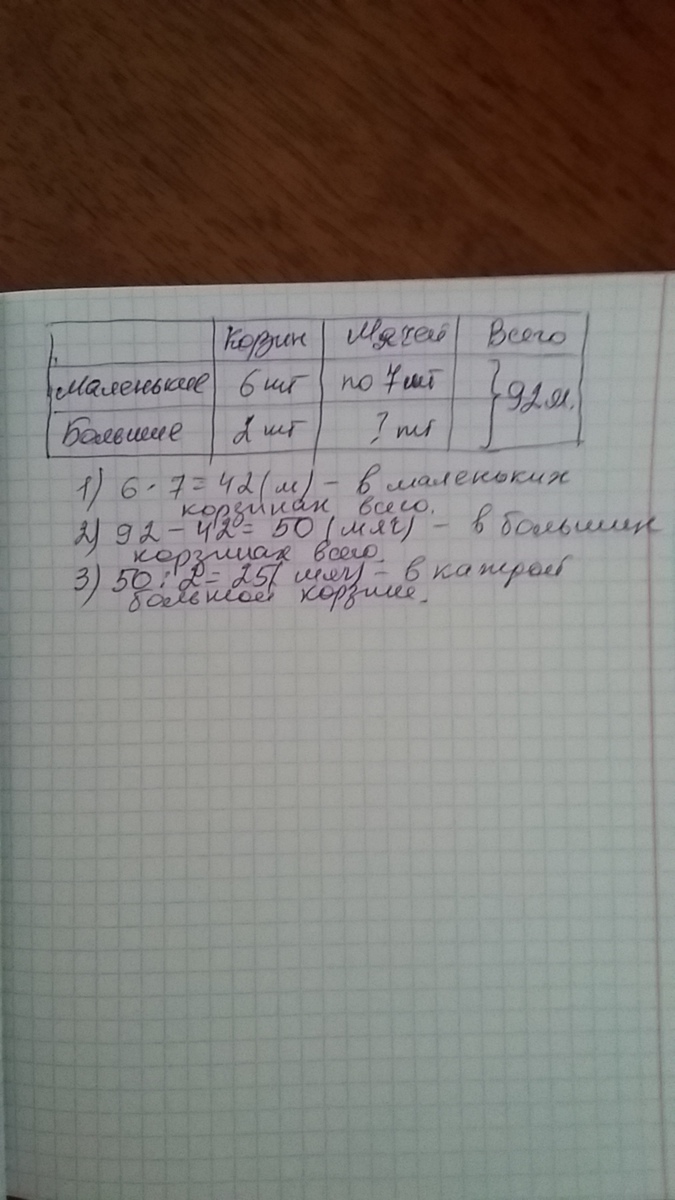 Корзин Мячей Всего
Маленькие 6 шт по 7 шт } 92 м.
Большие 2 шт ? шт
1) 6 · 7 = 42 (м) – в маленьких
корзинах всего.
2) 92 – 42 = 50 (мяч) – в больших
корзинах всего.
3) 50 : 2 = 25 (мяч) – в каждой
большой корзине.